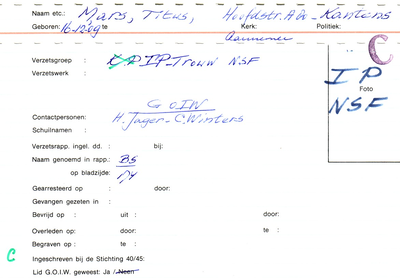 Naam etc.: Murs, Titus, Hoofdstr. A a - Kantens
Geboren: 16-12-09 te Kerk: Politiek:
Aannemer
Verzetsgroep : L.P IP-Trouw NSF
Verzetswerk :
C
IP
Foto
NSF
GOIW
Contactpersonen: H. Jager - C. Winters
Schuilnamen :
Verzetsrapp. ingel. dd. : bij:
Naam genoemd in rapp.: BS
op bladzijde:
Gearresteerd op : door:
Gevangen gezeten in :
Bevrijd op : uit : door:
Overleden op: door: te :
Begraven op : te :
C Ingeschreven bij de Stichting 40/45:
Lid G.O.I.W. geweest: Ja / Neen